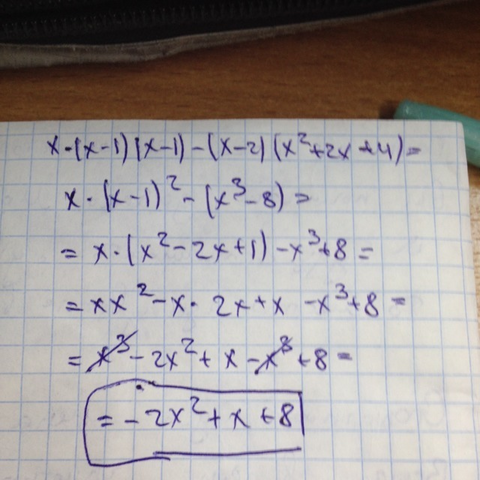 x·(x-1)(x-1)-(x-2)(x²+2x+4)=
x·(x-1)²-(x³-8)=
=x·(x²-2x+1)-x³+8=
=xx²-x·2x+x-x³+8=
=x³-2x²+x-x³+8=
=-2x²+x+8